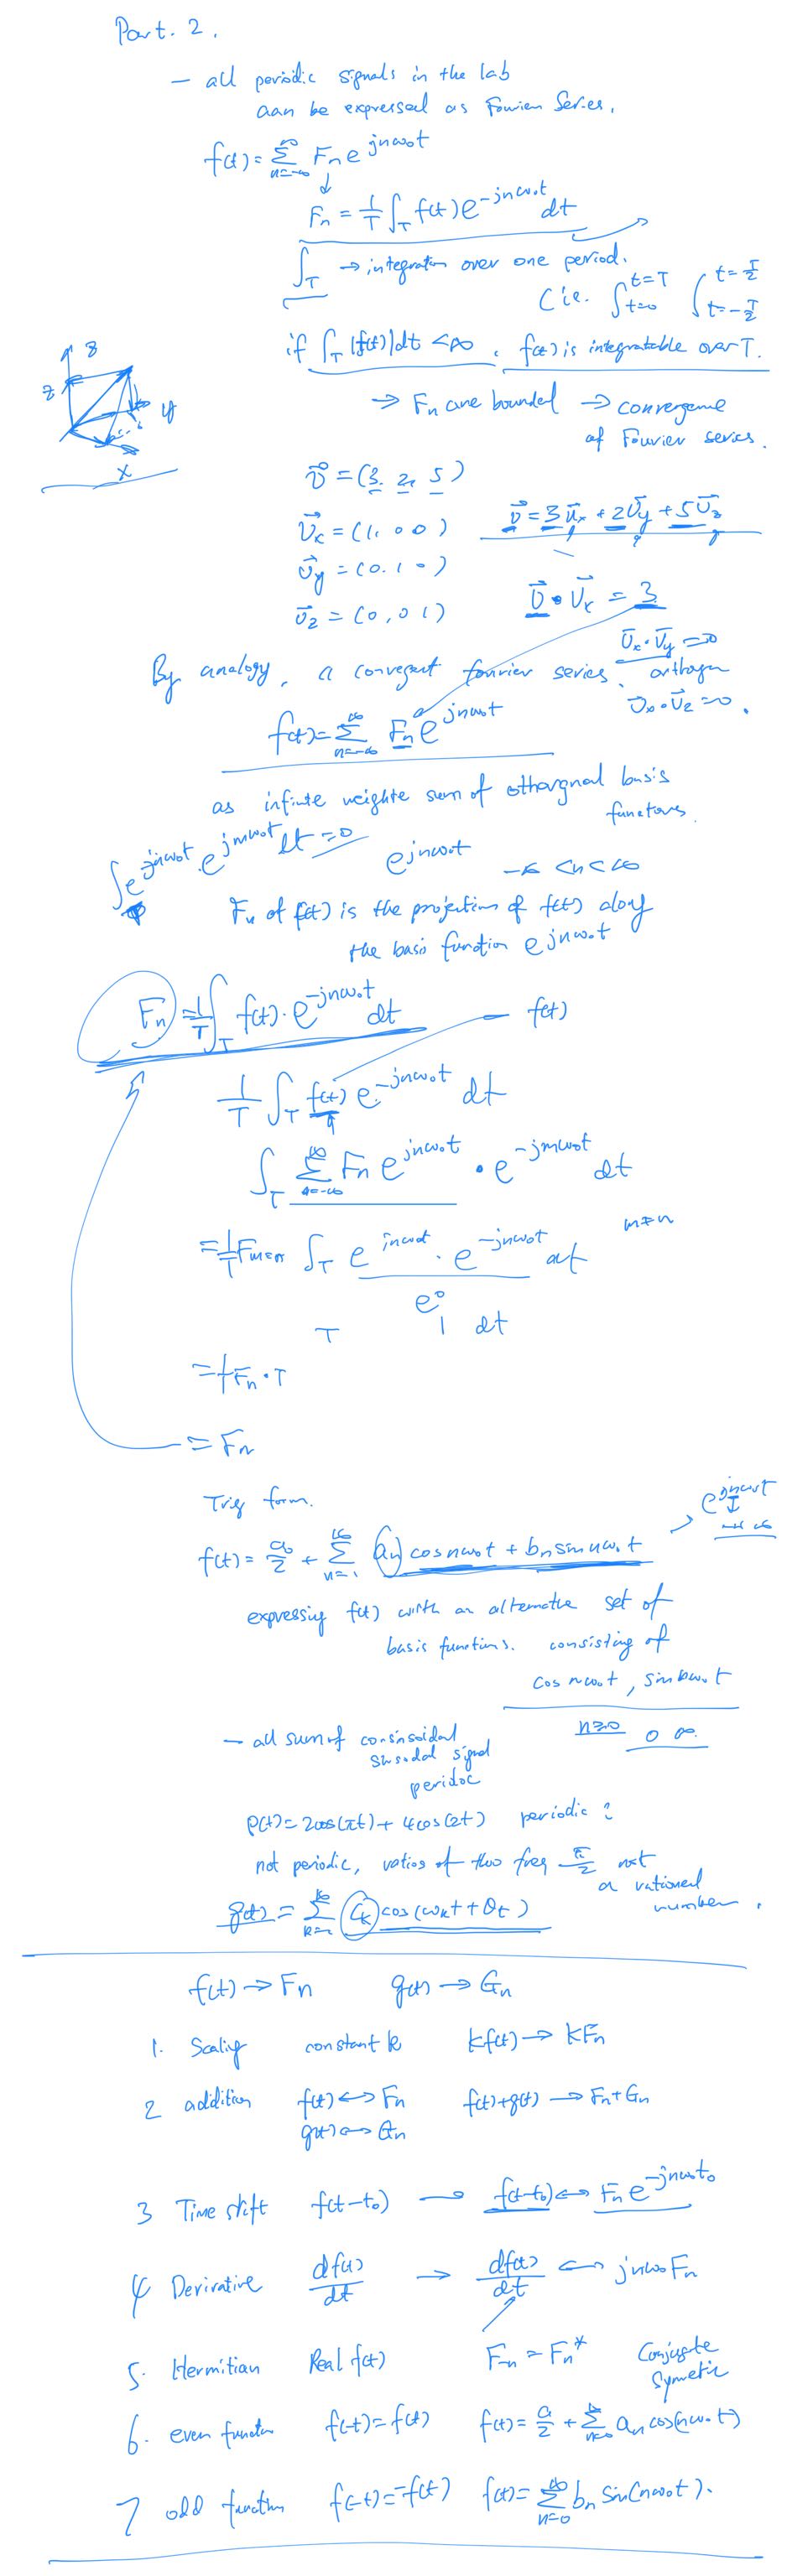 Part. 2.
— all periodic signals in the lab
aan be expressed as Fourier Series.
f(t) = Σ_{n=-∞}^{∞} F_n e^{jnω₀t}
↓
F_n = 1/T ∫_T f(t) e^{-jnω₀t} dt
∫_T → integration over one period.
(ie. ∫_{t=0}^{t=T} ∫_{t=-T/2}^{t=T/2}
if ∫_T |f(t)|dt < ∞ , f(t) is integratable over T.
→ F_n are bounded → convergence
of Fourier series.
z 3 y x
v⃗ = (3, 2, 5)
v⃗x = (1, 0 0)
v⃗ = 3 u⃗x + 2 v⃗y + 5 v⃗3
v⃗y = (0. 1 0)
v⃗z = (0, 0 1)
v⃗ • v⃗x = 3
v⃗x · v⃗y = 0
By analogy, a convegent fourier series.
orthogn
v⃗x · v⃗z = 0.
f(t) = Σ_{n=-∞}^{∞} F_n e^{jnω₀t}
as infinite weighte sum of othorgnal basis
functions.
∫ e^{jnω₀t} · e^{jmω₀t} dt = 0
e^{jnω₀t} -∞ < n < ∞
F_n of f(t) is the projection of f(t) along
the basis function e^{jnω₀t}
F_n = 1/T ∫_T f(t) · e^{-jnω₀t} dt — f(t)
1/T ∫_T f(t) e^{-jnω₀t} dt
∫_T Σ_{n=-∞}^{∞} F_n e^{jnω₀t} • e^{-jmω₀t} dt
m≠n
= 1/T F_{m=n} ∫_T e^{jnω₀t} · e^{-jnω₀t} dt
e⁰
T 1 dt
= 1/T F_n • T
= F_n
Trig form.
e^{jnω₀t}
-∞ ∞
f(t) = a₀/2 + Σ_{n=1}^{∞} a_n cos nω₀t + b_n sin nω₀t
expressing f(t) with an alternative set of
basis functions. consisting of
cos nω₀t , sin nω₀t
n≥0 0 ∞
— all sum of consinsoidal
sinsodal signal
peridoc
p(t) = 2cos(πt) + 4cos(2t) periodic ?
not periodic, ratios of two freq π/2 not
a rational
number.
g(t) = Σ_{k=1}^{∞} C_k cos(ω_k t + θ_t)
f(t) → F_n g(t) → G_n
1. Scaling constant k kf(t) → kF_n
2 addition f(t) ↔ F_n f(t)+g(t) → F_n+G_n
g(t) ↔ G_n
3 Time shift f(t-t₀) → f(t-t₀) ↔ F_n e^{-jnω₀t₀}
4 Derivative df(t)/dt → df(t)/dt ↔ jnω₀F_n
5. Hermitian Real f(t) F_{-n} = F_n* Conjugate
Symetric
6. even functon f(-t) = f(t) f(t) = a/2 + Σ_{n=0}^{∞} a_n cos(nω₀t)
7 odd function f(-t) = -f(t) f(t) = Σ_{n=0}^{∞} b_n sin(nω₀t).